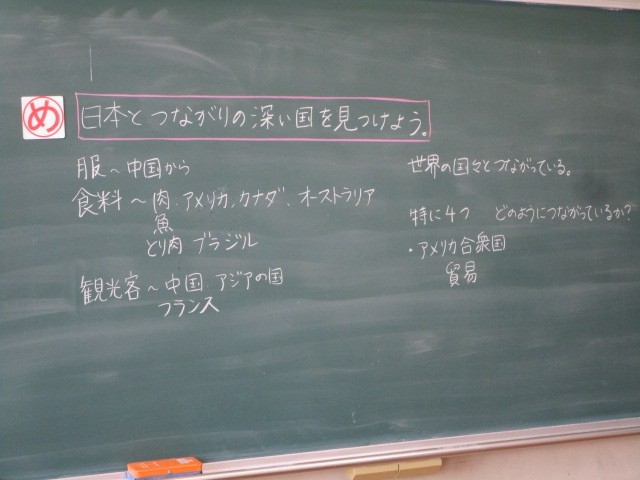 め
日本とつながりの深い国を見つけよう。
服～中国から
食料～肉、アメリカ、カナダ、オーストラリア
魚
とり肉 ブラジル
観光客～中国 アジアの国
フランス
世界の国々とつながっている。
特に4つ どのようにつながっているか?
・アメリカ合衆国
貿易